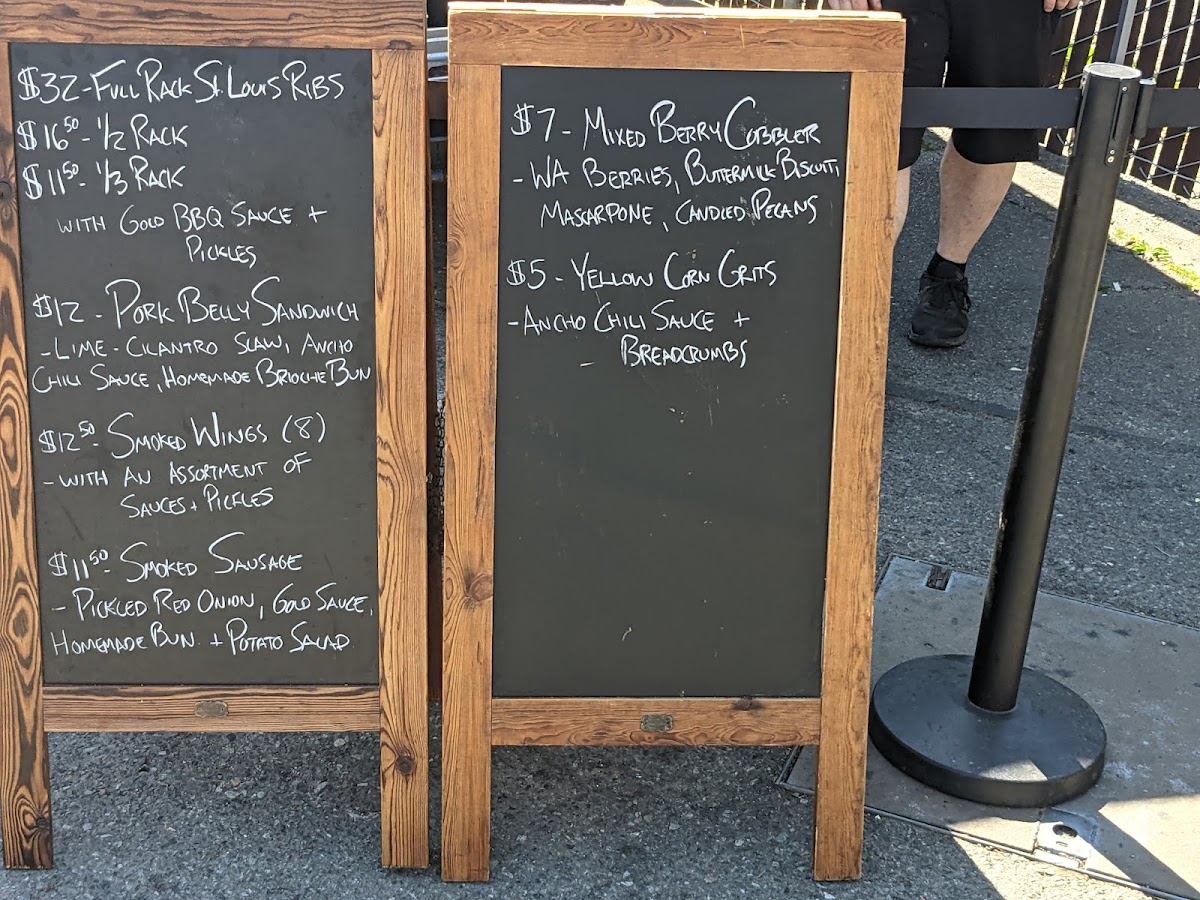 $32-Full Rack St. Louis Ribs
$16⁵⁰- 1/2 Rack
$11⁵⁰- 1/3 Rack
with Gold BBQ Sauce +
Pickles
$12 - Pork Belly Sandwich
- Lime-Cilantro Slaw, Ancho
Chili Sauce, Homemade Brioche Bun
$12⁵⁰- Smoked Wings (8)
- with an Assortment of
Sauces + Pickles
$11⁵⁰- Smoked Sausage
- Pickled Red Onion, Gold Sauce,
Homemade Bun + Potato Salad
$7 - Mixed Berry Cobbler
- WA Berries, Buttermilk Biscuit,
Mascarpone, Candied Pecans
$5 - Yellow Corn Grits
- Ancho Chili Sauce +
- Breadcrumbs